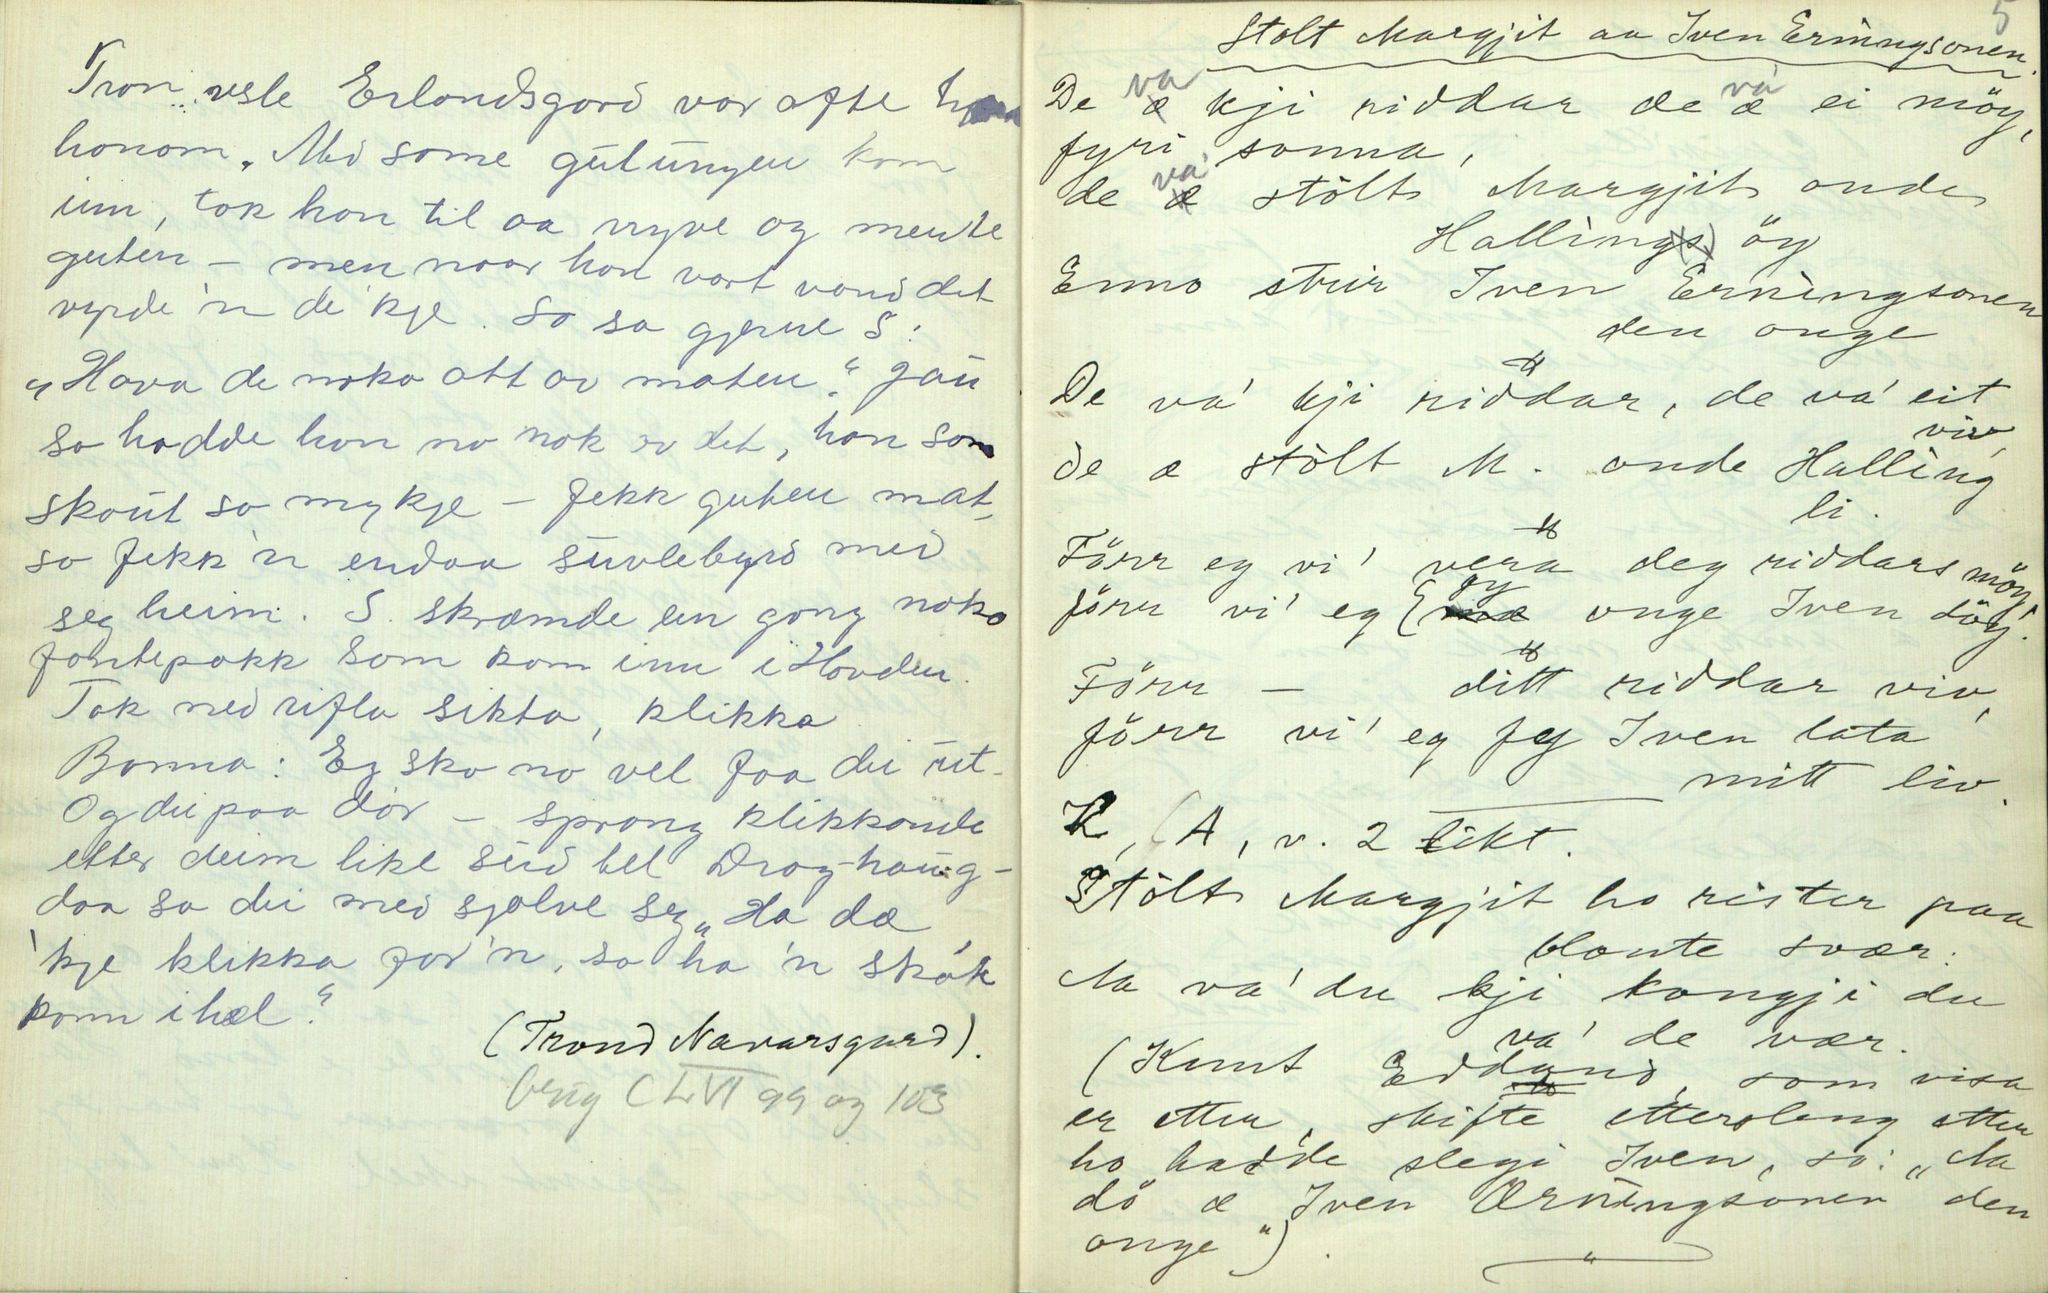 Tron vesle Erlandsgard var ofte hjaa
honom. Med same gutungen kom
inn, tok han til aa ryve og mente
guten – men naar han vart vand det
vyrde 'n de 'kje. So sa gjerne S:
„Hava de noko att av maten". Jau
so hadde han no nok av det, han som
skaut so mykje – fekk guten mat,
so fekk 'n endaa suvlebyrd med
seg heim. S. skræmde ein gong noko
fantepakk som kom inn i Hovden.
Tok ned rifla sikta, klikka
Banna: Eg ska no vel faa di ut-
Og di paa dør – sprang klikkande
etter deim like sud tel Draghaug-
daa sa di med sjølve seg „Ha dæ
'kje klikka for 'n, so ha 'n skåte
konn ihæl".
(Trond Navarsgard).
Orig CLVI 99 og 103
5
Stolt Margjit aa Iven Erningsonen.
De æ va kji riddar de æ va' ei möy,
fyri sonna,
de æ va' stölt Margjit onde
Hallings öy
Enno strir Iven Erningsonen
den onge
De va' kji riddar, de va' eit
viv,
de æ stölt M. onde Halling
li.
Förr eg vi' vera deg riddars möy,
förr vi' eg fy onge Iven döy.
Förr — ditt riddar viv,
förr vi' eg fy Iven lata
mitt liv.
K, (A, v. 2 likt.
Stölt Margjit ho rister paa
blonte svær:
Na va' du kji kongji du
va' de vær.
(Knut Eddand, som visa
er etter, skifte ettersleng etter
ho hadde slegi Iven, so: „Na
dö æ Iven Ærningsonen den
onge")